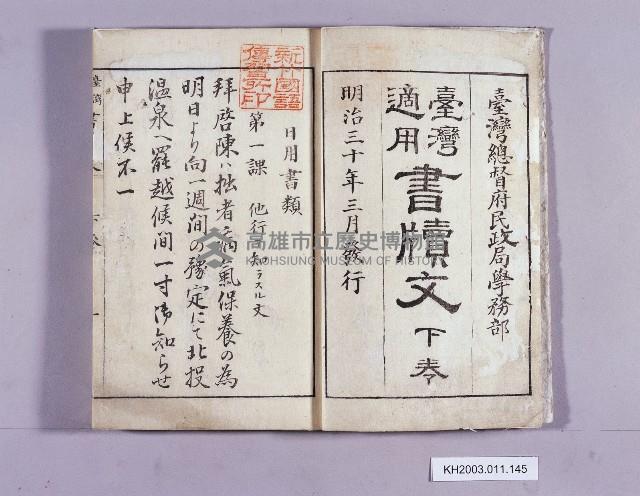 臺灣總督府民政局學務部
臺灣
適用
書牘文
下卷
明治三十年三月發行
新竹國語
傳習所印
日用書類
第一課 他行ヲ知ラスル文
拜啓陳ハ拙者病氣保養の為
明日より向一週間の豫定にて北投
溫泉へ罷越候間一寸御知らせ
申上候不一
高雄市立歷史博物館
KAOHSIUNG MUSEUM OF HISTORY
KH2003.011.145